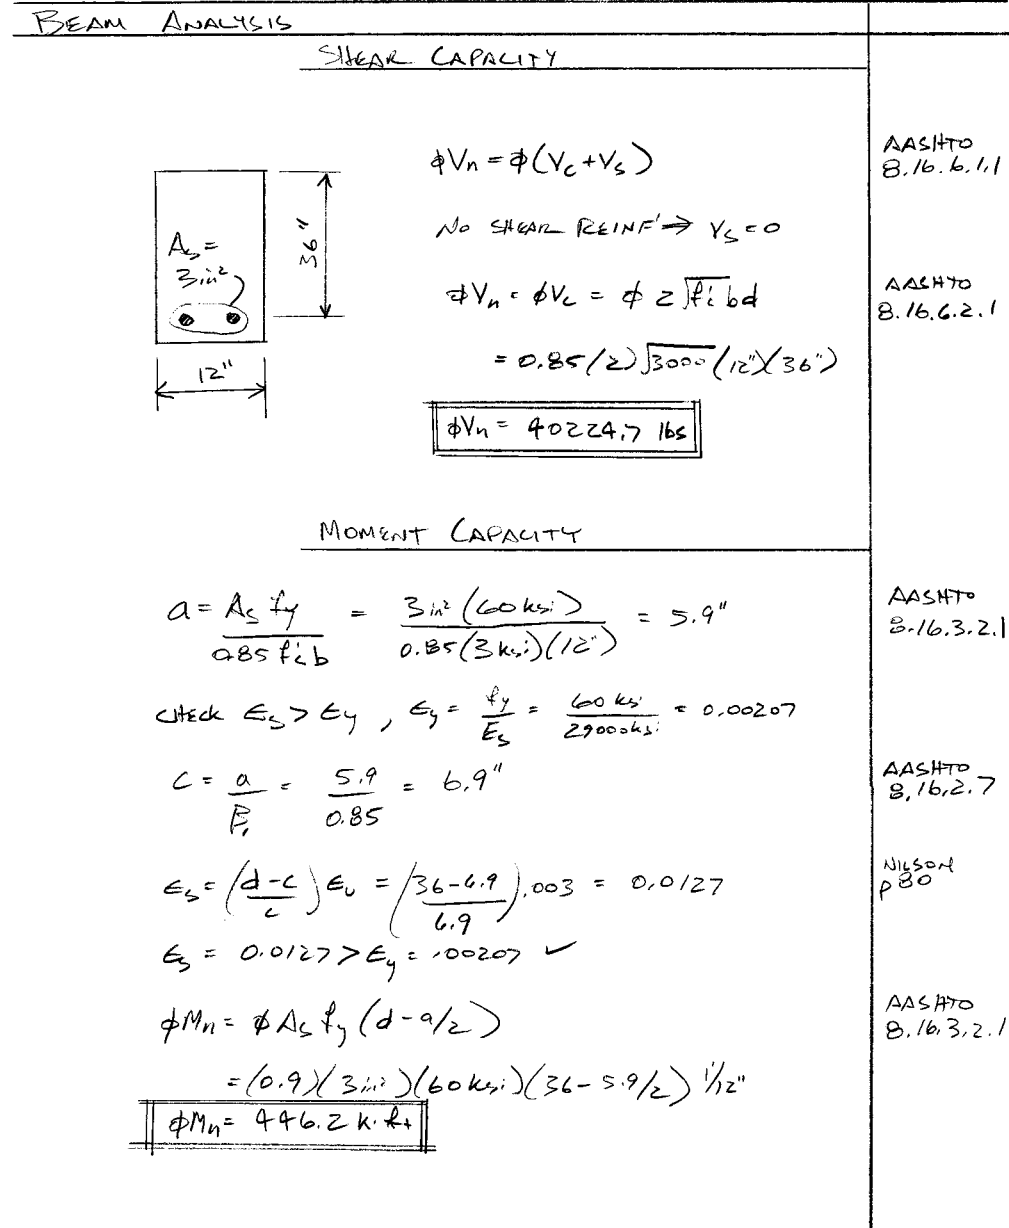 BEAM ANALYSIS
SHEAR CAPACITY
ϕVn = ϕ(Vc + Vs)
AASHTO
8.16.6.1.1
NO SHEAR REINF' → Vs = 0
As =
3in²
36"
ϕVn = ϕVc = ϕ 2 √f'c bd
AASHTO
8.16.6.2.1
= 0.85(2)√3000 (12")(36")
12"
ϕVn = 40224.7 lbs
MOMENT CAPACITY
a = As fy / 0.85 f'c b = 3in² (60 ksi) / 0.85(3 ksi)(12") = 5.9"
AASHTO
8.16.3.2.1
CHECK ϵs > ϵy , ϵy = fy / Es = 60 ksi / 29000ksi = 0.00207
c = a / β1 = 5.9 / 0.85 = 6.9"
AASHTO
8.16.2.7
ϵs = (d-c / c) ϵu = (36-6.9 / 6.9) .003 = 0.0127
NILSON
p80
ϵs = 0.0127 > ϵy = .00207 ✓
ϕMn = ϕ As fy (d - a/2)
AASHTO
8.16.3.2.1
= (0.9)(3in²)(60 ksi)(36 - 5.9/2) 1'/12"
ϕMn = 446.2 k·ft